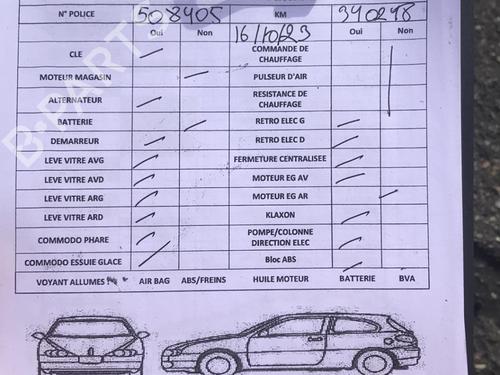 N° POLICE 508405 KM 340298
Oui Non 16/10/23 Oui Non
CLE COMMANDE DE CHAUFFAGE
MOTEUR MAGASIN PULSEUR D'AIR
ALTERNATEUR RESISTANCE DE CHAUFFAGE
BATTERIE RETRO ELEC G
DEMARREUR RETRO ELEC D
LEVE VITRE AVG FERMETURE CENTRALISEE
LEVE VITRE AVD MOTEUR EG AV
LEVE VITRE ARG MOTEUR EG AR
LEVE VITRE ARD KLAXON
COMMODO PHARE POMPE/COLONNE DIRECTION ELEC
COMMODO ESSUIE GLACE Bloc ABS
VOYANT ALLUMES AIR BAG ABS/FREINS HUILE MOTEUR BATTERIE BVA
B-PARTS